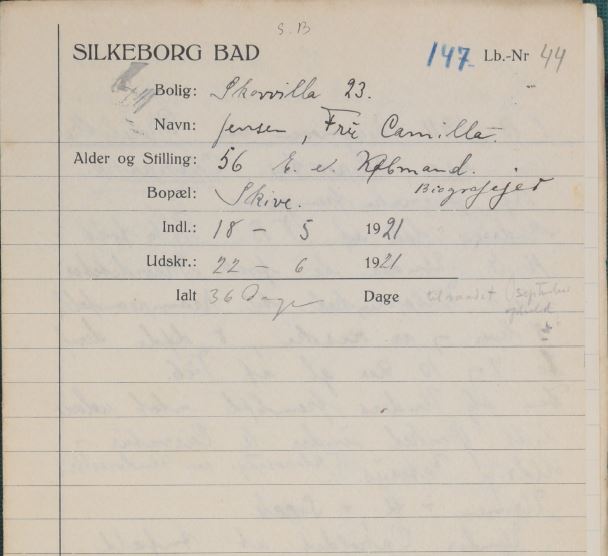 S.B
SILKEBORG BAD 147 Lb.-Nr 44
Bolig: Skovvilla 23.
Navn: Jensen, Fru Camilla.
Alder og Stilling: 56 E. e. Købmand.
Biografejer
Bopæl: Skive.
Indl.: 18 - 5 1921
Udskr.: 22 - 6 1921
Ialt 36 Dage Dage tilraadet September
ophold